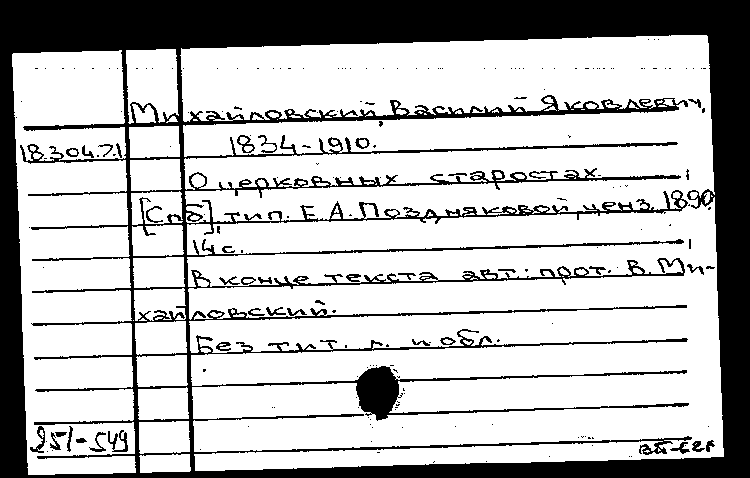 Михайловский, Василий Яковлевич,
18.304.7.1
1834-1910.
О церковных старостах.
[Спб], тип. Е.А. Поздняковой, ценз. 1890.
14 с.
В конце текста авт.: прот. В. Ми-
хайловский.
Без тит. л. и обл.
251-549